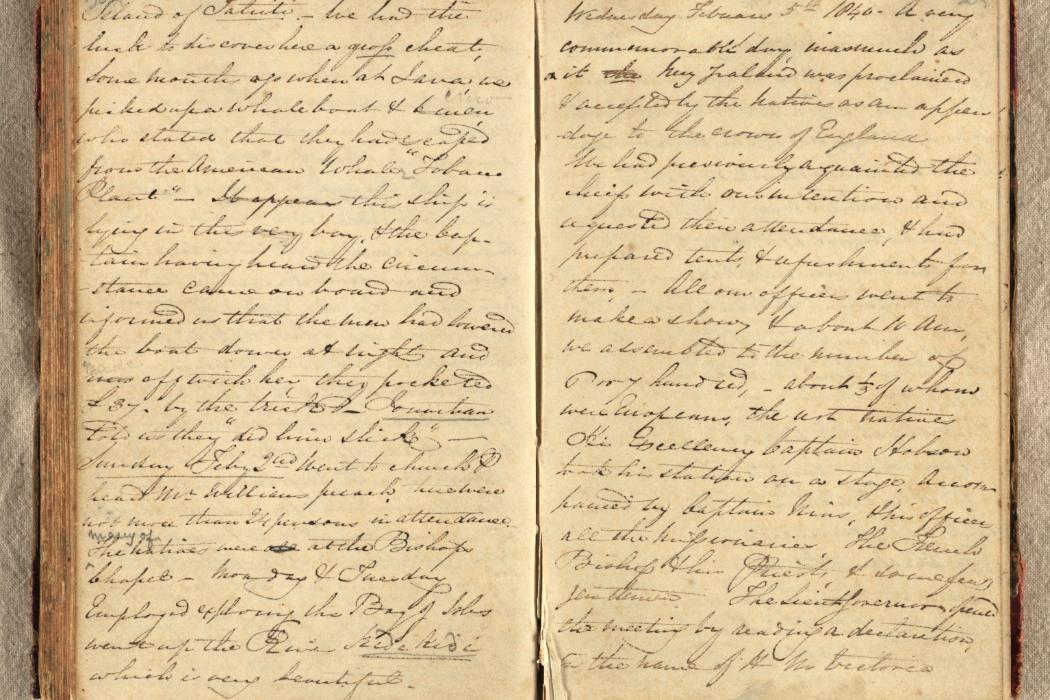 Island of Tahiti. – We had the
luck to discover here a gross cheat,
Some months ago when at Java we
picked up a whale boat & 6 men
crew
who stated that they had escaped
from the American Whaler "Tobacco
Plant" – It appears this ship is
lying in this very bay, & the Cap-
tain having heard the circum-
-stance came on board and
informed us that the men had lowered
the boat down at night and
off with her they pocketed
£37. by the trick – Jonathan
told us they "did him slick" –
Sunday Feby 2nd Went to church &
heard Mr Williams preach there were
not more than 24 persons in attendance.
many of
The natives were at the Bishops
Chapel – Monday & Tuesday
Employed exploring the Bay of Isles
went up the River Kidi Kidi
which is very beautiful. –
Wednesday February 5th 1840 – A very
commemorable day, inasmuch as
in it the New Zealand was proclaimed
& accepted by the natives as an appen
dage to the crown of England
We had previously acquainted the
chiefs with our intention and
requested their attendance, & had
prepared tents, & refreshments for
them, – All our officers went to
make a show, & about 10 Am,
we assembled to the number of
6 or 7 hundred, – about ⅓ of whom
were Europeans, the rest natives
His Excellency Captain Hobson
took his station on a stage, accom
panied by Captain Nias, & his officers
all the missionaries, The French
Bishop & his Priests, & some few
gentlemen. The Lieut Governor opened
the meeting by reading a declaration,
in the name of H M Victoria